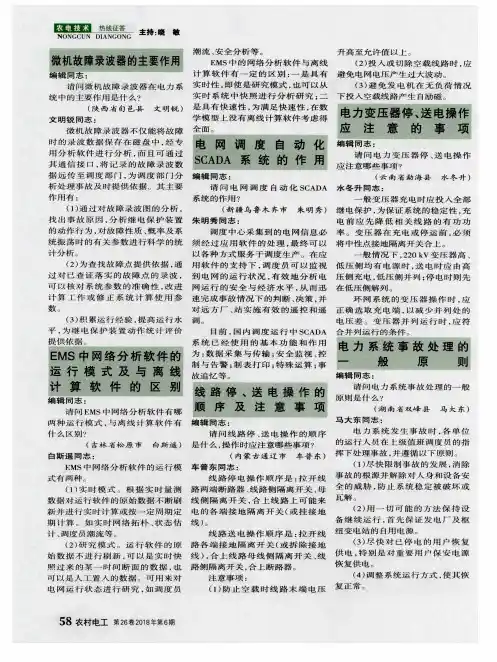 农电技术 热线征答
NONGCUN DIANGONG
主持:晓 敏
微机故障录波器的主要作用
编辑同志:
请问微机故障录波器在电力系
统中的主要作用是什么?
(陕西省旬邑县 文明锐)
文明锐同志:
微机故障录波器不仅能将故障
时的录波数据保存在磁盘中,经专
用分析软件进行分析,而且可通过
其通信接口,将记录的故障录波数
据远传至调度部门,为调度部门分
析处理事故及时提供依据。其主要
作用有:
(1)通过对故障录波图的分析,
找出事故原因,分析继电保护装置
的动作行为,对故障性质、概率及系
统振荡时的有关参数进行科学的统
计分析。
(2)为查找故障点提供依据,通
过对已查证落实的故障点的录波,
可以核对系统参数的准确性,改进
计算工作或修正系统计算使用参
数。
(3)积累运行经验,提高运行水
平,为继电保护装置动作统计评价
提供依据。
EMS中网络分析软件的
运行模式及与离线
计算软件的区别
编辑同志:
请问EMS中网络分析软件有哪
两种运行模式,与离线计算软件有
什么区别?
(吉林省松原市 白斯遥)
白斯遥同志:
EMS中网络分析软件的运行模
式有两种。
(1)实时模式。根据实时量测
数据对运行软件的原始数据不断刷
新并进行实时计算或按一定周期定
期计算。如实时网络拓朴、状态估
计、调度员潮流等。
(2)研究模式。运行软件的原
始数据不进行刷新,可以是实时快
照过来的某一时间断面的数据,也
可以是人工置入的数据。可用来对
电网运行状态进行研究,如调度员
潮流、安全分析等。
EMS中的网络分析软件与离线
计算软件有一定的区别:一是具有
实时性,即使是研究模式,也可以从
实时系统中快照进行分析研究;二
是具有快速性,为满足快速性,在数
学模型上没有离线计算软件考虑得
全面。
电网调度自动化
SCADA 系统的作用
编辑同志:
请问电网调度自动化SCADA
系统的作用?
(新疆乌鲁木齐市 朱明秀)
朱明秀同志:
调度中心采集到的电网信息必
须经过应用软件的处理,最终可以
以各种方式服务于调度生产。在应
用软件的支持下,调度员可以监视
到电网的运行状况,有效地分析电
网运行的安全与经济水平,从而迅
速完成事故情况下的判断、决策,并
对远方厂、站实施有效的遥控和遥
调。
目前,国内调度运行中SCADA
系统已经使用的基本功能和作用
为:数据采集与传输;安全监视、控
制与告警;制表打印;特殊运算;事
故追忆等。
线路停、送电操作的
顺序及注意事项
编辑同志:
请问线路停、送电操作的顺序
是什么,操作时应注意哪些事项?
(内蒙古通辽市 车普东)
车普东同志:
线路停电操作顺序是:拉开线
路两端断路器、线路侧隔离开关、母
线侧隔离开关,合上线路上可能来
电的各端接地隔离开关(或挂接地
线)。
线路送电操作顺序是:拉开线
路各端接地隔离开关(或拆除接地
线),合上线路母线侧隔离开关、线
路侧隔离开关,合上断路器。
注意事项:
(1)防止空载时线路末端电压
升高至允许值以上。
(2)投入或切除空载线路时,应
避免电网电压产生过大波动。
(3)避免发电机在无负荷情况
下投入空载线路产生自励磁。
电力变压器停、送电操作
应注意的事项
编辑同志:
请问电力变压器停、送电操作
应注意哪些事项?
(云南省勐海县 水冬升)
水冬升同志:
一般变压器充电时应投入全部
继电保护,为保证系统的稳定性,充
电前应先降低相关线路的有功功
率。变压器在充电或停运前,必须
将中性点接地隔离开关合上。
一般情况下,220 kV变压器高、
低压侧均有电源时,送电时应由高
压侧充电,低压侧并列;停电时则先
在低压侧解列。
环网系统的变压器操作时,应
正确选取充电端,以减少并列处的
电压差。变压器并列运行时,应符
合并列运行的条件。
电力系统事故处理的
一般原则
编辑同志:
请问电力系统事故处理的一般
原则是什么?
(湖南省双峰县 马大东)
马大东同志:
电力系统发生事故时,各单位
的运行人员在上级值班调度员的指
挥下处理事故,并遵循以下原则。
(1)尽快限制事故的发展,消除
事故的根源并解除对人身和设备安
全的威胁,防止系统稳定被破坏或
瓦解。
(2)用一切可能的方法保持设
备继续运行,首先保证发电厂及枢
纽变电站的自用电源。
(3)尽快对已停电的用户恢复
供电,特别是对重要用户保安电源
恢复供电。
(4)调整系统运行方式,使其恢
复正常。
58 农村电工 第26卷2018年第6期